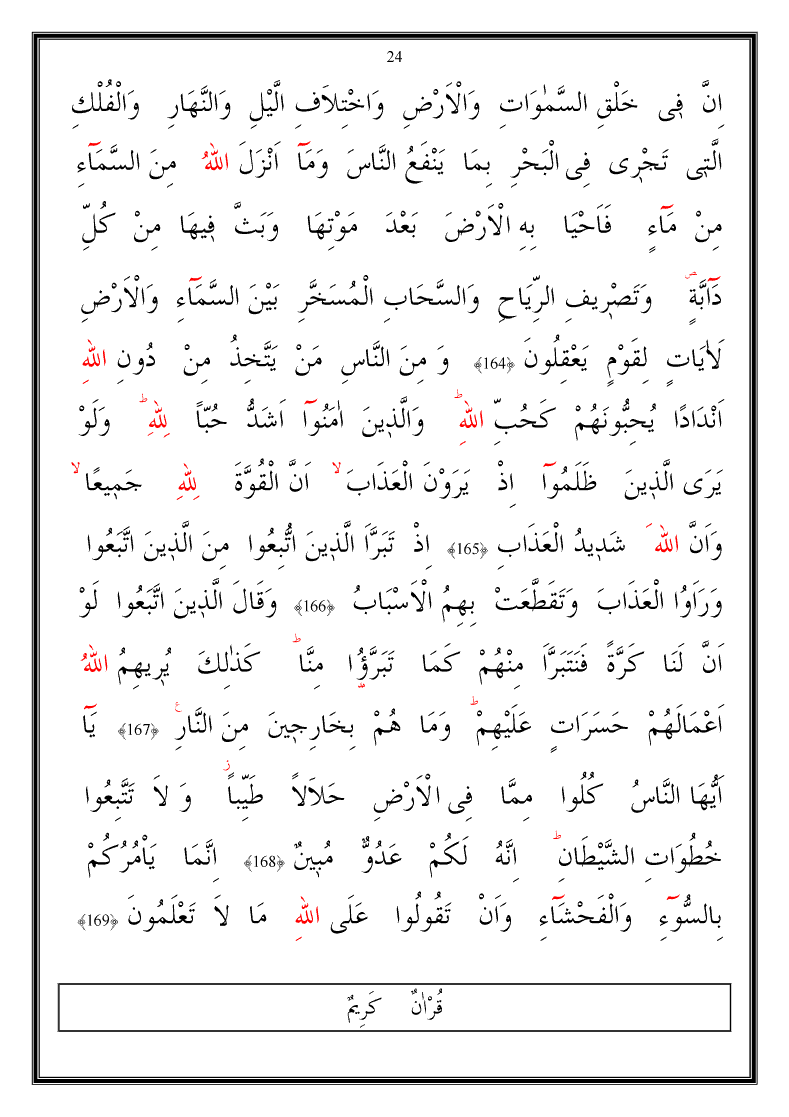 24
اِنَّ فٖى خَلْقِ السَّمٰوَاتِ وَالْاَرْضِ وَاخْتِلاَفِ الَّيْلِ وَالنَّهَارِ وَالْفُلْكِ
الَّتٖى تَجْرٖى فِى الْبَحْرِ بِمَا يَنْفَعُ النَّاسَ وَمَآ اَنْزَلَ اللهُ مِنَ السَّمَآءِ
مِنْ مَآءٍ فَاَحْيَا بِهِ الْاَرْضَ بَعْدَ مَوْتِهَا وَبَثَّ فٖيهَا مِنْ كُلِّ
دَآبَّةٍۖ وَتَصْرٖيفِ الرِّيَاحِ وَالسَّحَابِ الْمُسَخَّرِ بَيْنَ السَّمَآءِ وَالْاَرْضِ
لَاٰيَاتٍ لِقَوْمٍ يَعْقِلُونَ ﴿164﴾ وَ مِنَ النَّاسِ مَنْ يَتَّخِذُ مِنْ دُونِ اللهِ
اَنْدَادًا يُحِبُّونَهُمْ كَحُبِّ اللهِؕ وَالَّذٖينَ اٰمَنُوآ اَشَدُّ حُبّاً لِلهِؕ وَلَوْ
يَرَى الَّذٖينَ ظَلَمُوآ اِذْ يَرَوْنَ الْعَذَابَۙ اَنَّ الْقُوَّةَ لِلهِ جَمٖيعًاۙ
وَاَنَّ اللهَ شَدٖيدُ الْعَذَابِ ﴿165﴾ اِذْ تَبَرَّاَ الَّذٖينَ اتُّبِعُوا مِنَ الَّذٖينَ اتَّبَعُوا
وَرَاَوُا الْعَذَابَ وَتَقَطَّعَتْ بِهِمُ الْاَسْبَابُ ﴿166﴾ وَقَالَ الَّذٖينَ اتَّبَعُوا لَوْ
اَنَّ لَنَا كَرَّةً فَنَتَبَرَّاَ مِنْهُمْ كَمَا تَبَرَّؤُ۫ا مِنَّاؕ كَذٰلِكَ يُرٖيهِمُ اللهُ
اَعْمَالَهُمْ حَسَرَاتٍ عَلَيْهِمْؕ وَمَا هُمْ بِخَارِجٖينَ مِنَ النَّارِࣖ ﴿167﴾ يَآ
اَيُّهَا النَّاسُ كُلُوا مِمَّا فِى الْاَرْضِ حَلَالاً طَيِّباًؗ وَ لاَ تَتَّبِعُوا
خُطُوَاتِ الشَّيْطَانِؕ اِنَّهُ لَكُمْ عَدُوٌّ مُبٖينٌ ﴿168﴾ اِنَّمَا يَاْمُرُكُمْ
بِالسُّوٓءِ وَالْفَحْشَآءِ وَاَنْ تَقُولُوا عَلَى اللهِ مَا لاَ تَعْلَمُونَ ﴿169﴾
قُرْاٰنٌ كَرٖيمٌ